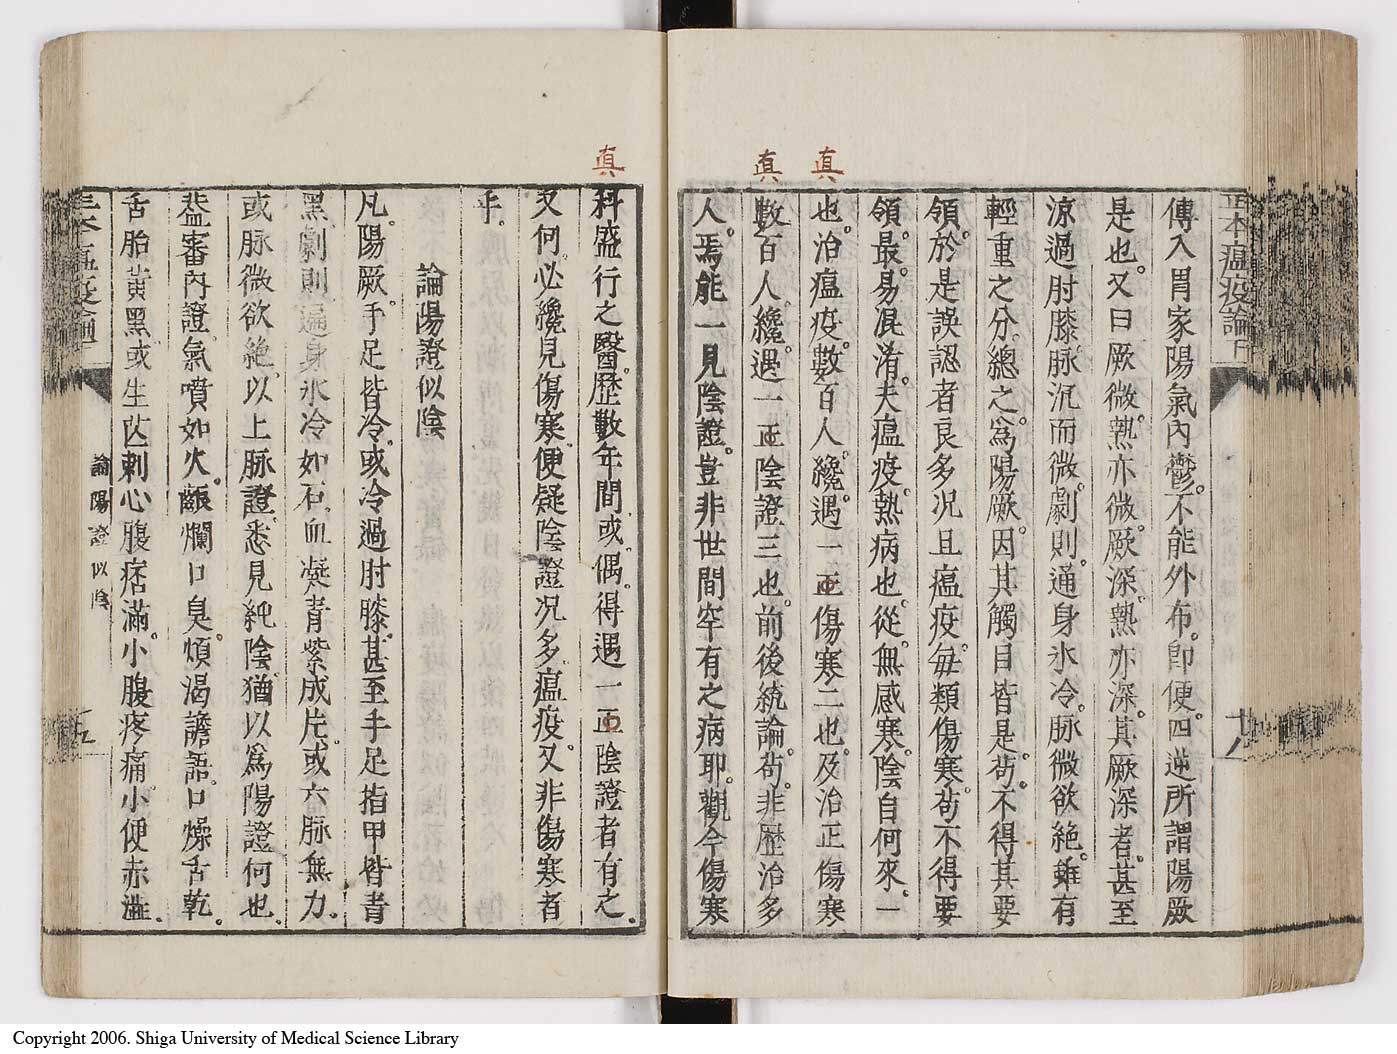 正本瘟疫論下
傳入胃家陽氣內鬱。不能外布。卽便。四逆所謂陽厥
是也。又曰厥微。熱亦微。厥深。熱亦深。其厥深者。甚至
涼過肘膝。脉沉而微。劇則。通身氷冷。脉微欲絶。雖有
輕重之分。總之。爲陽厥。因其觸目皆是。茍。不得其要
領。於。是誤認者良多。况且瘟疫。每類傷寒。茍不得要
領。最。易混淆。夫瘟疫。熱病也。從。無感寒。陰自何來。一
也。治瘟疫。數百人。纔。遇一正傷寒二也。及治正傷寒
數百人。纔。遇。一正陰證三也。前後統論。茍。非歷治多
人。焉能一見陰證。豈非世間罕有之病耶。觀今傷寒
眞
眞
科盛行之醫。歷數年間或偶。得遇一正陰證者有之。
又何。必纔見傷寒。便疑陰證。况多瘟疫。又非傷寒者
乎。
論陽證似陰
凡。陽厥。手足皆冷。或冷過肘膝。甚至手足指甲皆青
黑。劇則遍身氷冷如石。血凝青紫成片。或六脉無力。
或脉微欲絶。以上脉證。悉見純陰。猶以爲陽證何也。
葢審內證。氣噴如火。齦爛口臭。煩渴譫語。口燥舌乾。
舌胎黃黑或生芒刺心腹痞滿。小腹疼痛。小便赤澁。
眞
論陽證似陰